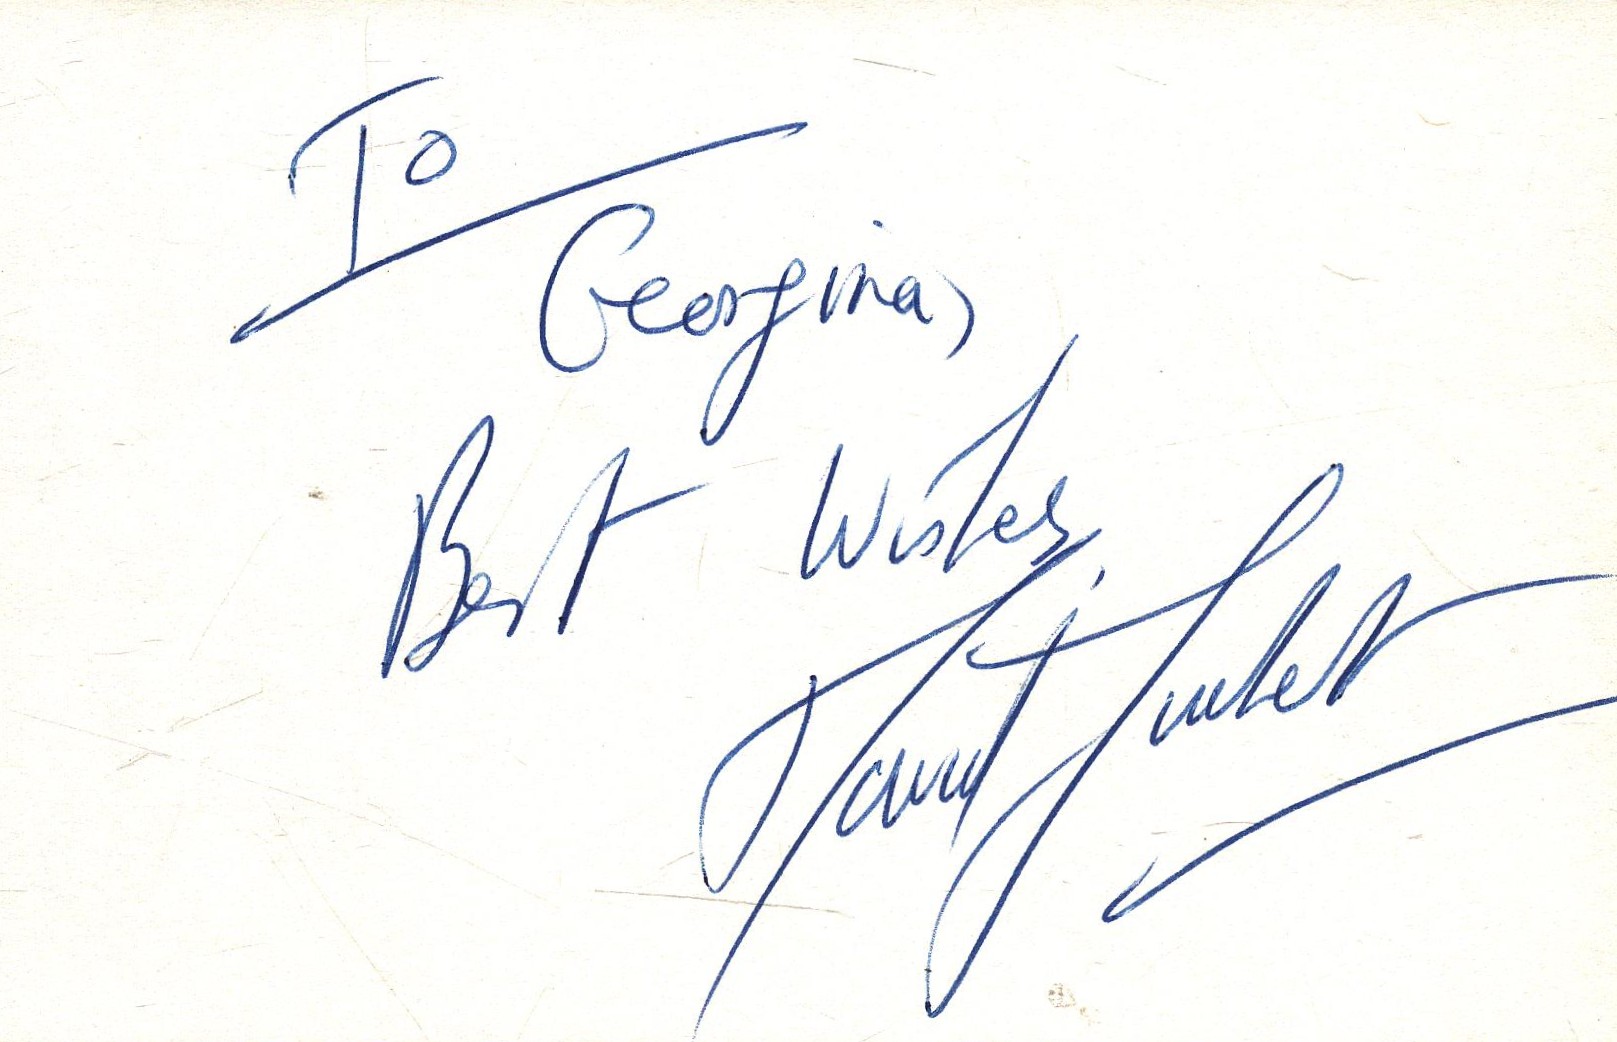 To
Georgina,
Best Wishes,